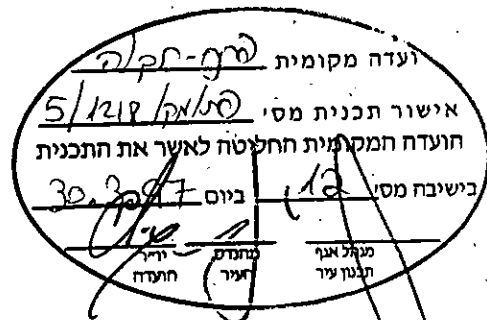 ועדה מקומית פתח-תקוה
אישור תכנית מס' פת/מק/1218/5
הועדה המקומית החליטה לאשר את התכנית
בישיבה מס' 12 ביום 30.3.97
מנהל אגף תכנון עיר
מהנדס העיר
יו"ר הועדה